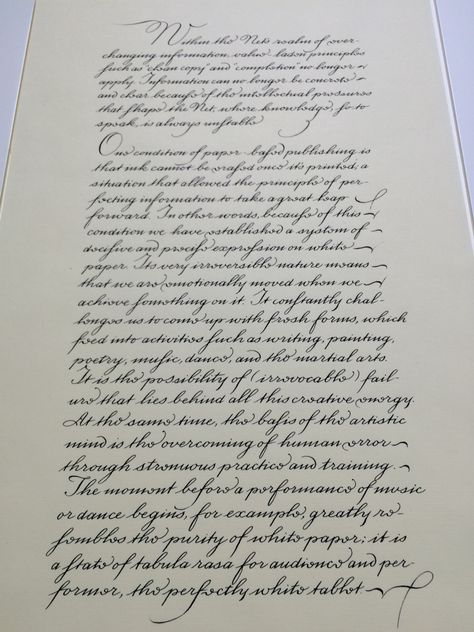 Within the Net's realm of ever-
changing information, value-laden principles
such as "clean copy" and "completion" no longer
apply. Information can no longer be concrete
and clear because of the intellectual pressures
that shape the Net, where knowledge, so to
speak, is always unstable.
One condition of paper-based publishing is
that ink cannot be erased once it's printed, a
situation that allowed the principle of per-
fecting information to take a great leap
forward. In other words, because of this
condition we have established a system of
decisive and precise expression on white
paper. Its very irreversible nature means
that we are emotionally moved when we
achieve something on it. It constantly chal-
lenges us to come up with fresh forms, which
feed into activities such as writing, painting,
poetry, music, dance, and the martial arts.
It is the possibility of (irrevocable) fail-
ure that lies behind all this creative energy.
At the same time, the basis of the artistic
mind is the overcoming of human error
through strenuous practice and training.
The moment before a performance of music
or dance begins, for example, greatly re-
sembles the purity of white paper; it is
a state of tabula rasa for audience and per-
former, the perfectly white tablet